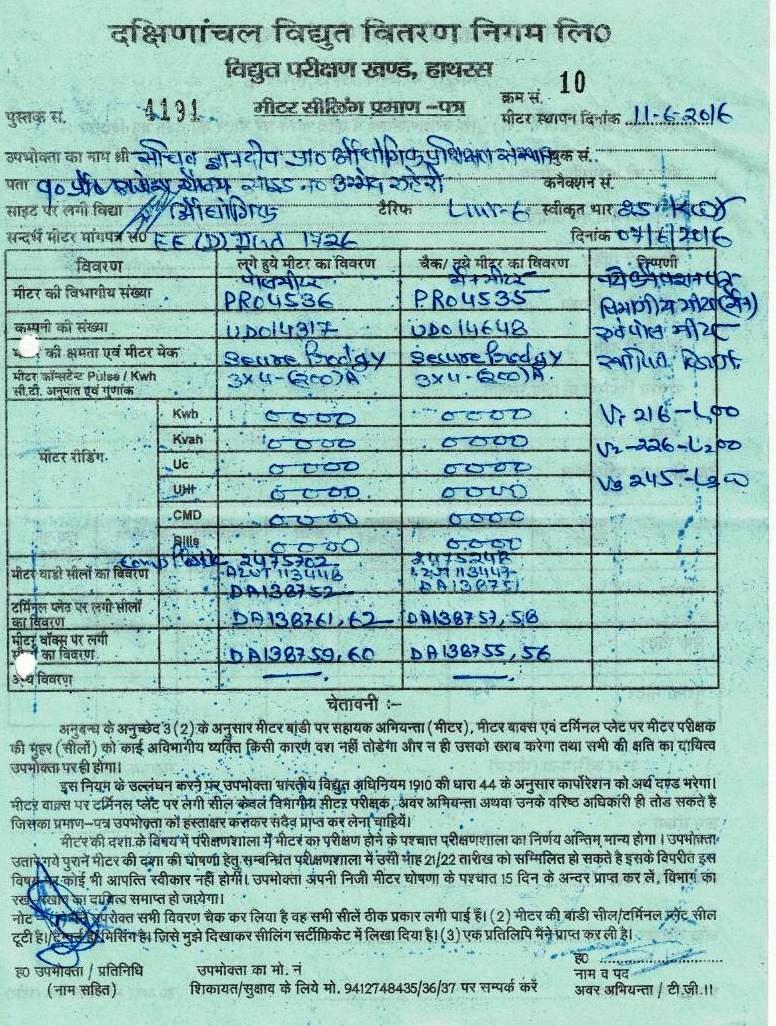 दक्षिणांचल विद्युत वितरण निगम लि0
विद्युत परीक्षण खण्ड, हाथरस
पुस्तक सं. 4191 मीटर सीलिंग प्रमाण-पत्र क्रम सं. 10
मीटर स्थापन दिनांक 11-6-2016
उपभोक्ता का नाम श्री सचिव ज्ञानदीप प्रा0 औधोगिक प्रशिक्षण संस्थान बुक सं..
पता कनैक्शन सं.
साइट पर लगी विद्या औधोगिक टैरिफ LMV-6 स्वीकृत भार 25
सन्दर्भ मीटर मांगपत्र सं0 EE (D) 1726 दिनांक 07/6/2016
विवरण लगे हुये मीटर का विवरण चैक/ नये मीटर का विवरण टिप्पणी
पोल मीटर मेन मीटर
मीटर की विभागीय संख्या PRO4536 PRO4535 विभागीय मीटर (मेन)
कम्पनी की संख्या UDO14317 UDO14648 एवं पोल मीटर
की क्षमता एवं मीटर मेक Secure Prodigy Secure Prodigy स्थापित किया
मीटर कॉन्सटेन्ट Pulse / Kwh 3X4-(30)A 3X4-(30)A
सी.टी. अनुपात एवं गुणांक
मीटर रीडिंग
Kwh 0000 0000 V1 216-L100
Kvah 0000 0000 V2-226-L200
Uc 0000 0000 V3 245-L300
UHI 0000 0000
CMD 0000 0000
Bills 0000 0000
मीटर बाडी सीलों का विवरण 2475702 2475248
DA138752 DA138751
टर्मिनल प्लेठ पर लगी सीलों का विवरण DA138761, 62 DA138757, 58
मीटर बॉक्स पर लगी
का विवरण DA138759, 60 DA138755, 56
अन्य विवरण — —
चेतावनी :–
अनुबन्ध के अनुच्छेद 3 (2) के अनुसार मीटर बांडी पर सहायक अभियन्ता (मीटर), मीटर बाक्स एवं टर्मिनल प्लेट पर मीटर परीक्षक
की मुहर (सीलों) को काई अविभागीय व्यक्ति किसी कारण वश नहीं तोडेगा और न ही उसको खराब करेगा तथा सभी की क्षति का दायित्व
उपभोक्ता पर ही होगा।
इस नियम के उल्लंघन करने पर उपभोक्ता भारतीय विद्युत अधिनियम 1910 की धारा 44 के अनुसार कार्पोरेशन को अर्थ दण्ड भरेगा।
मीटर वाक्स पर टर्मिनल प्लेट पर लगी सील केवल विभागीय मीटर परीक्षक, अवर अभियन्ता अथवा उनके वरिष्ठ अधिकारी ही तोड सकते है
जिसका प्रमाण-पत्र उपभोक्ता को हस्ताक्षर कराकर संदैव प्राप्त कर लेना चाहिये।
मीटर की दशा के विषय में परीक्षणशाला में मीटर का परीक्षण होने के पश्चात परीक्षणशाला का निर्णय अन्तिम मान्य होगा। उपभोक्ता
उतारे गये पुराने मीटर की दशा की घोषणा हेतु सम्बन्धित परीक्षणशाला में उसी माह 21/22 तारीख को सम्मिलित हो सकते है इसके विपरीत इस
विषय पर कोई भी आपत्ति स्वीकार नहीं होगी। उपभोक्ता अपनी निजी मीटर घोषणा के पश्चात 15 दिन के अन्दर प्राप्त कर लें, विभाग का
रख रखाव का दायित्व समाप्त हो जायेगा।
नोट उपरोक्त सभी विवरण चैक कर लिया है वह सभी सीलें ठीक प्रकार लगी पाई हैं। (2) मीटर की बांडी सील/टर्मिनल प्लेट सील
टूटी है। मिसिंग है। जिसे मुझे दिखाकर सीलिंग सर्टीफिकेट में लिखा दिया है। (3) एक प्रतिलिपि मैंने प्राप्त कर ली है।
ह0 उपभोक्ता / प्रतिनिधि
(नाम सहित)
उपभोक्ता का मो. नं
शिकायत/सुक्षाव के लिये मो. 9412748435/36/37 पर सम्पर्क करें
ह0
नाम व पद
अवर अभियन्ता / टी.जी.।।